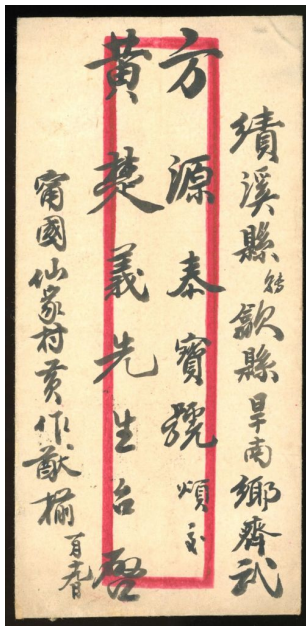 績溪縣轉歙縣旱南鄉齊武
方源泰寶號煩交
黃楚義先生台啓
甯國仙家村黃作猷槭